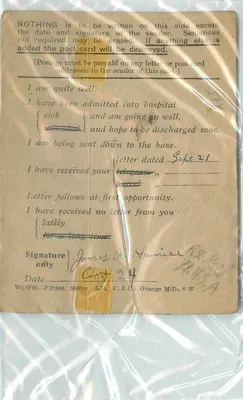 NOTHING is to be written on this side except
the date and signature of the sender. Sentences
not required may be erased. If anything else is
added the post card will be destroyed.
[Postage must be prepaid on any letter or post card
addressed to the sender of this card.]
I am quite well.
I have been admitted into hospital
{ sick } and am going on well.
and hope to be discharged soon.
I am being sent down to the base.
letter dated Sept 21
I have received your telegram ,,
parcel ,,
Letter follows at first opportunity.
I have received no letter from you
{ lately
for a long time.
Signature
only
James
Date Oct 24